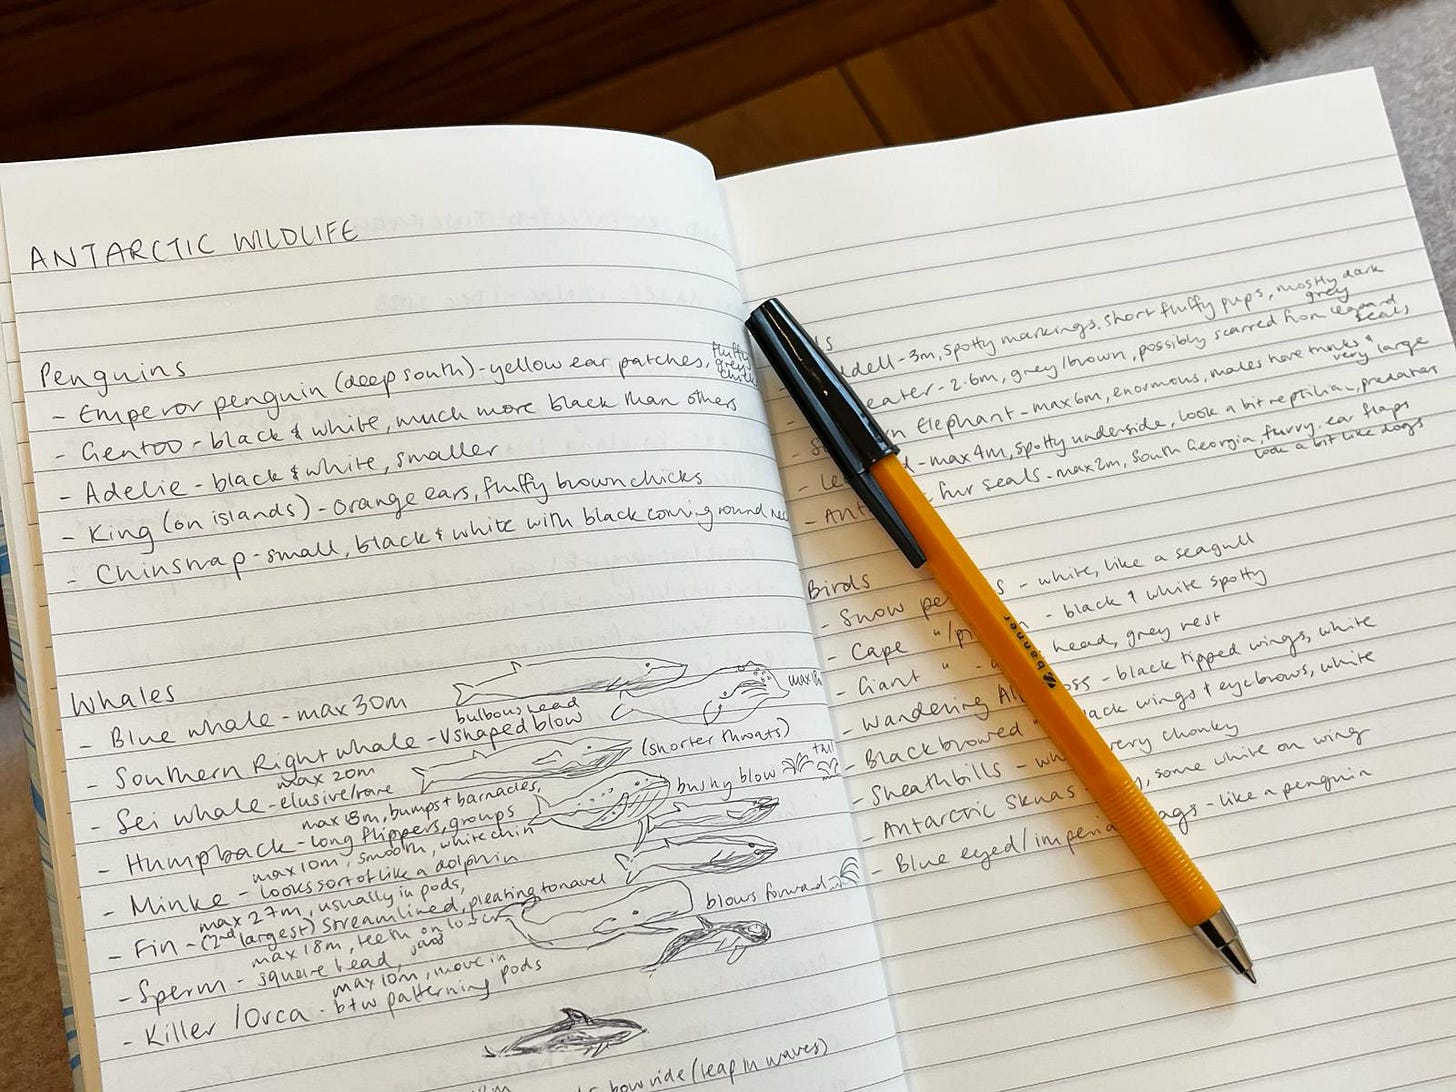 ANTARCTIC WILDLIFE
Penguins
- Emperor penguin (deep south) - yellow ear patches, fluffy grey chicks
- Gentoo - black & white, much more black than others
- Adelie - black & white, smaller
- King (on islands) - orange ears, fluffy brown chicks
- Chinstrap - small, black & white with black coming round
Whales
- Blue whale - max 30m
- Southern Right whale - V shaped blow
bulbous head
max
max 20m
- Sei whale - elusive/rare
(shorter throats)
max 18m, bumps + barnacles,
- Humpback - long flippers, groups
bushy blow
tail
max 10m, smooth, white chin
- Minke - looks sort of like a dolphin
max 27m, usually in pods,
- Fin - (2nd largest) streamlined, pleating to navel
max 18m, teeth on lower jaw
- Sperm - square head,
blows forward
max 10m, move in pods
- Killer / Orca - b+w patterning
bowride (leap in waves)
ddell - 3m, spotty markings, short fluffy pups, mostly dark grey
eater - 2.6m, grey/brown, possibly scarred from leopard seals
n Elephant - max 6m, enormous, males have trunks & very large
- Le d - max 4m, spotty underside, look a bit reptilian, predators
- Ant fur seals - max 2m, South Georgia, furry, ear flaps
look a bit like dogs
Birds
- Snow pe s - white, like a seagull
- Cape "/pi n - black & white spotty
- Giant " - head, grey rest
- Wandering Al oss - black tipped wings, white
- Black browed " ack wings + eyebrows, white
- Sheathbills - wh very chonky
- Antarctic Skuas - , some white on wing
- Blue eyed/imperia ags - like a penguin
banner